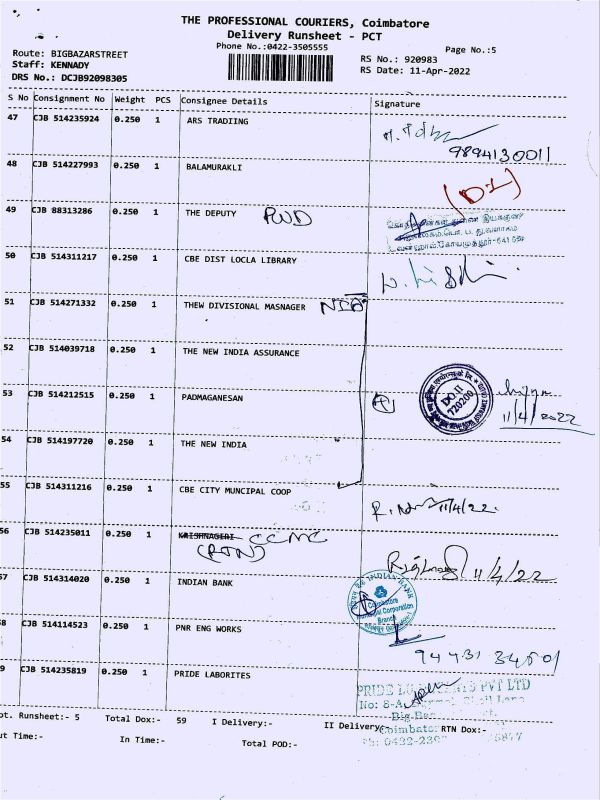 THE PROFESSIONAL COURIERS, Coimbatore
Delivery Runsheet - PCT
Phone No.:0422-3505555
Page No.:5
Route: BIGBAZARSTREET
RS No.: 920983
Staff: KENNADY
RS Date: 11-Apr-2022
DRS No.: DCJB92098305
S No Consignment No Weight PCS Consignee Details Signature
47 CJB 514235924 0.250 1 ARS TRADIING
9894130011
48 CJB 514227993 0.250 1 BALAMURAKLI
(D1)
49 CJB 88313286 0.250 1 THE DEPUTY PWD
50 CJB 514311217 0.250 1 CBE DIST LOCLA LIBRARY
51 CJB 514271332 0.250 1 THEW DIVISIONAL MASNAGER NIA
52 CJB 514039718 0.250 1 THE NEW INDIA ASSURANCE
53 CJB 514212515 0.250 1 PADMAGANESAN
4 DO.II 720200 11/4/2022
54 CJB 514197720 0.250 1 THE NEW INDIA
55 CJB 514311216 0.250 1 CBE CITY MUNCIPAL COOP
11/4/22.
56 CJB 514235011 0.250 1 KRISHNAGERI CCMC
(RTN)
11/4/22
57 CJB 514314020 0.250 1 INDIAN BANK
INDIAN BANK
Coimbatore
Municipal Corporation
Branch
58 CJB 514114523 0.250 1 PNR ENG WORKS
94431 34501
59 CJB 514235819 0.250 1 PRIDE LABORITES
PVT LTD
No: 8-A,
Coimbatore
Ph: 0422-
pt. Runsheet:- 5 Total Dox:- 59 I Delivery:- II Delivery:- RTN Dox:-
ut Time:- In Time:- Total POD:-